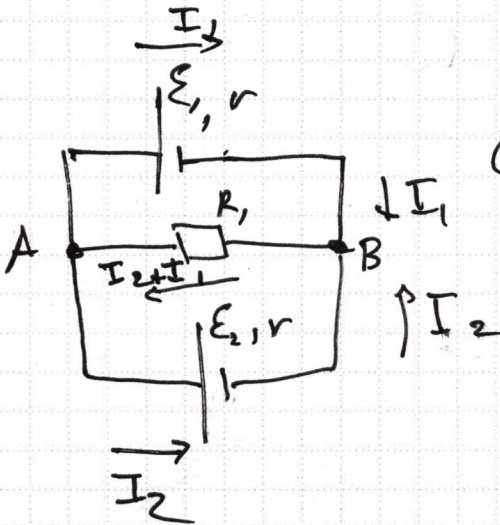 I₁
ℰ₁, r
R₁
↓ I₁
A
B
I₂+I₁
ℰ₂, r
↑ I₂
I₂